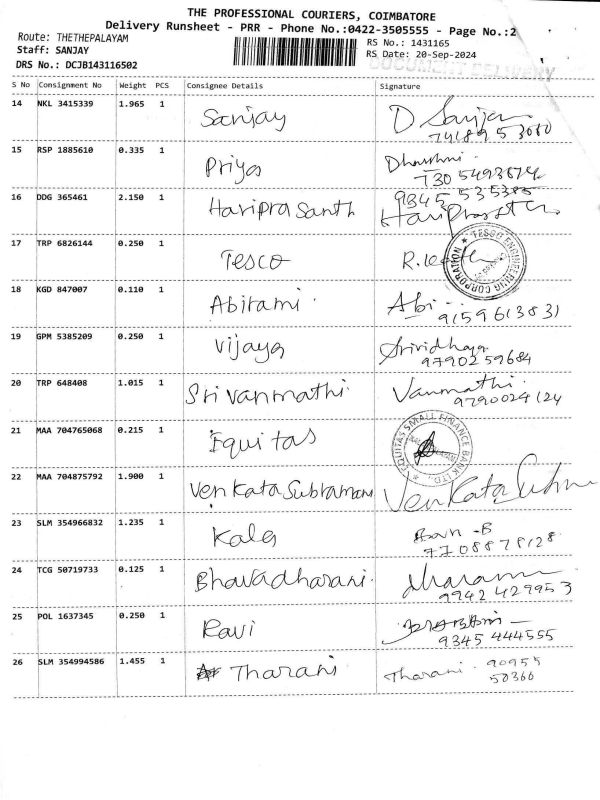 THE PROFESSIONAL COURIERS, COIMBATORE
Delivery Runsheet - PRR - Phone No.:0422-3505555 - Page No.:2
Route: THETHEPALAYAM
RS No.: 1431165
Staff: SANJAY
RS Date: 20-Sep-2024
DRS No.: DCJB143116502
DOCUMENT DELIVERY
S No Consignment No Weight PCS Consignee Details Signature
14 NKL 3415339 1.965 1 Sanjay D Sanjay
15 RSP 1885610 0.335 1 Priya Dharshni
16 DDG 365461 2.150 1 Hariprasanth 9345 535385
Hariprasath
17 TRP 6826144 0.250 1 Tesco
TESCO ENGINEERING CORPORATION
18 KGD 847007 0.110 1 Abirami Abi
9159613831
19 GPM 5385209 0.250 1 Vijaya Srividhaya
9790259684
20 TRP 648408 1.015 1 Srivanmathi Vanmathi
9790024124
21 MAA 704765068 0.215 1 Equitas
EQUITAS SMALL FINANCE BANK LTD.
22 MAA 704875792 1.900 1 Venkatasubramani Venkata
23 SLM 354966832 1.235 1 Kala
7708878128
24 TCG 50719733 0.125 1 Bhavadharani Dharani
9942429953
25 POL 1637345 0.250 1 Ravi
9345 444555
26 SLM 354994586 1.455 1 Tharani Tharani 90955
50366